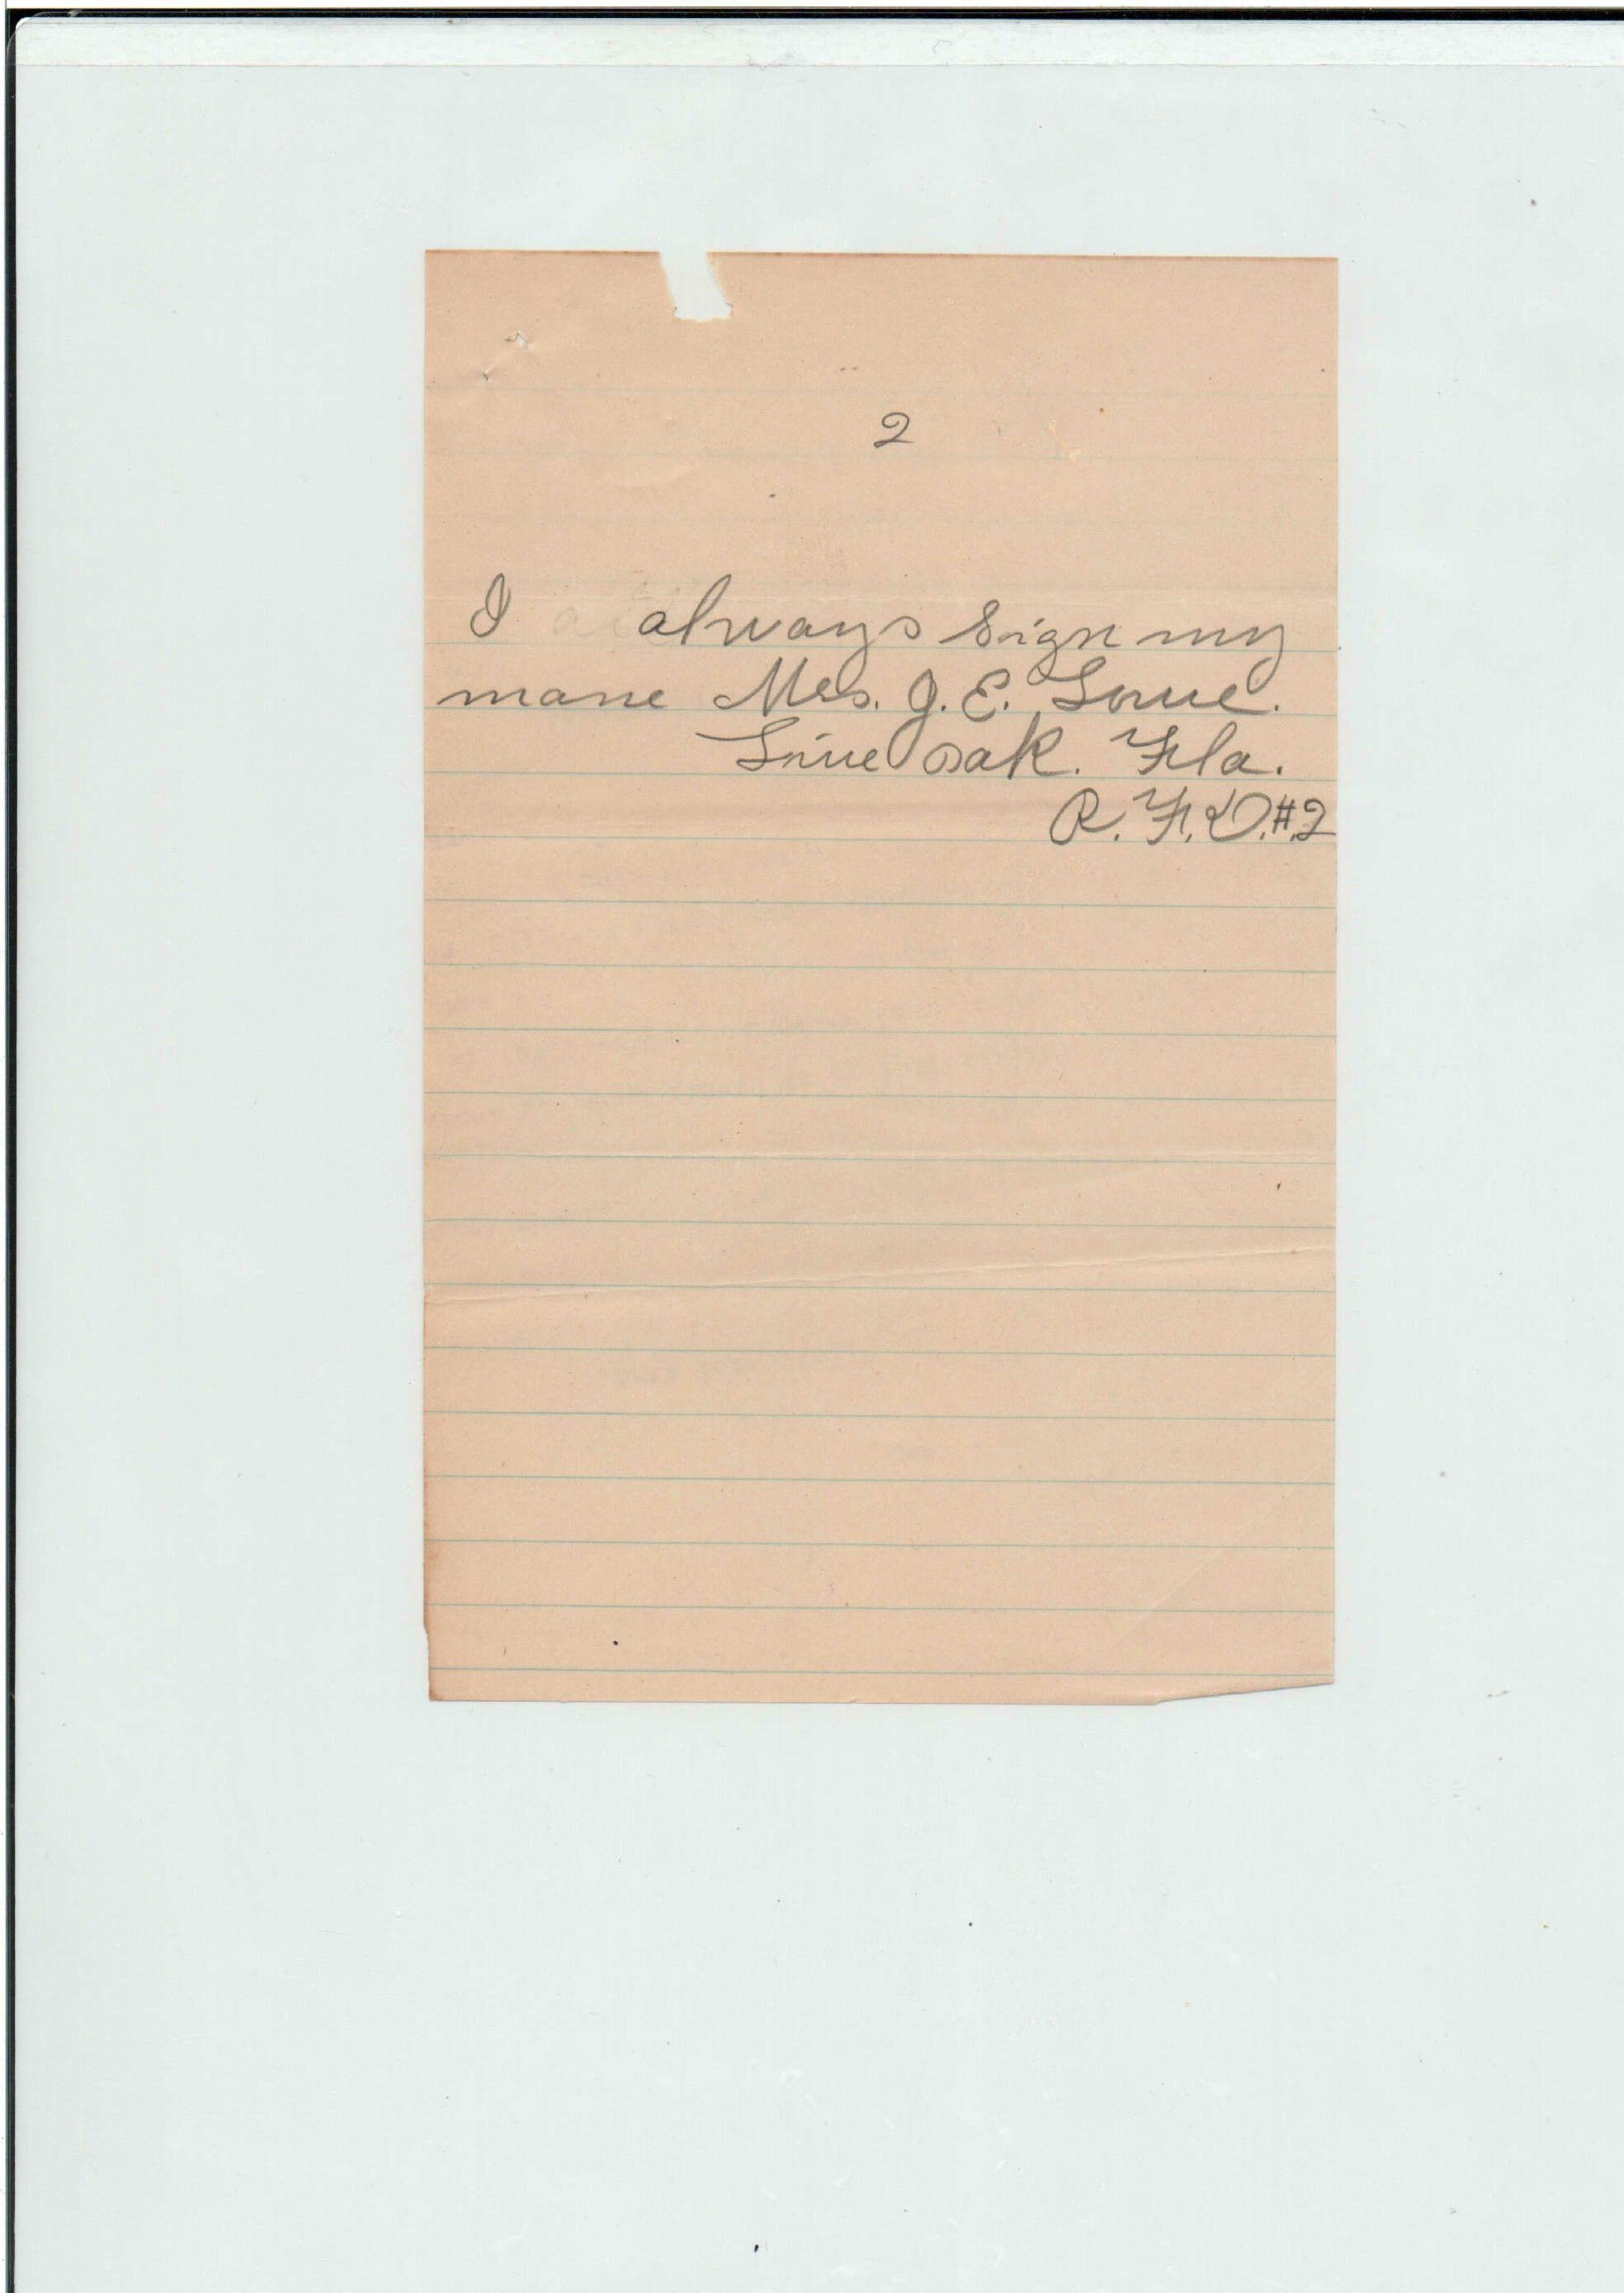 2
I always sign my
mane Mrs. J. E. Lowe.
Live oak. Fla.
R. F. D. #2